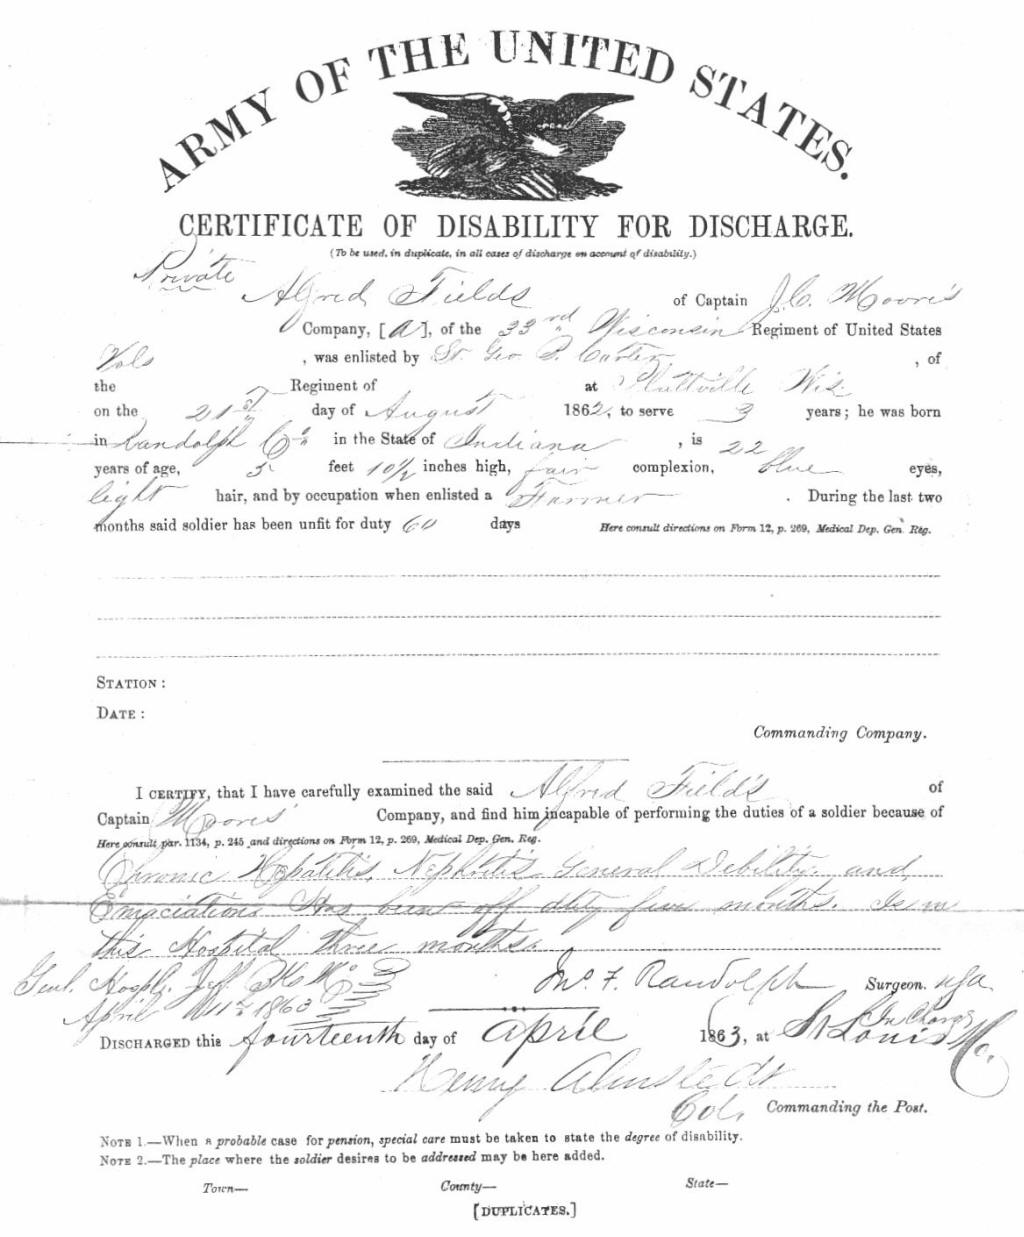 ARMY OF THE UNITED STATES.
CERTIFICATE OF DISABILITY FOR DISCHARGE.
(To be used, in duplicate, in all cases of discharge on account of disability.)
Private Alfred Fields of Captain J. C. Moore's
Company, [A], of the 33rd Wisconsin Regiment of United States
Vols , was enlisted by Geo B. Carter , of
the Regiment of at Plattville Wis
on the 21st day of August 1862, to serve 3 years; he was born
in Randolph Co. in the State of Indiana , is 22
years of age, 5 feet 10½ inches high, fair complexion, blue eyes,
light hair, and by occupation when enlisted a Farmer . During the last two
months said soldier has been unfit for duty 60 days Here consult directions on Form 12, p. 269, Medical Dep. Gen. Reg.
STATION:
DATE:
Commanding Company.
I CERTIFY, that I have carefully examined the said Alfred Fields of
Captain Moores' Company, and find him incapable of performing the duties of a soldier because of
Here consult par. 1134, p. 245 and directions on Form 12, p. 269, Medical Dep. Gen. Reg.
Chronic Hepatitis, Nephritis General Debility and
Emaciation. Has been off duty five months. Is in
this Hospital three months.
Genl. Hospl. Jeff. Bks Mo Jno. F. Randolph Surgeon. USA
April 11th 1863 In Charge
DISCHARGED this fourteenth day of April 1863, at St Louis Mo.
Henry Almstedt
Col. Commanding the Post.
NOTE 1.—When a probable case for pension, special care must be taken to state the degree of disability.
NOTE 2.—The place where the soldier desires to be addressed may be here added.
Town— County— State—
[DUPLICATES.]